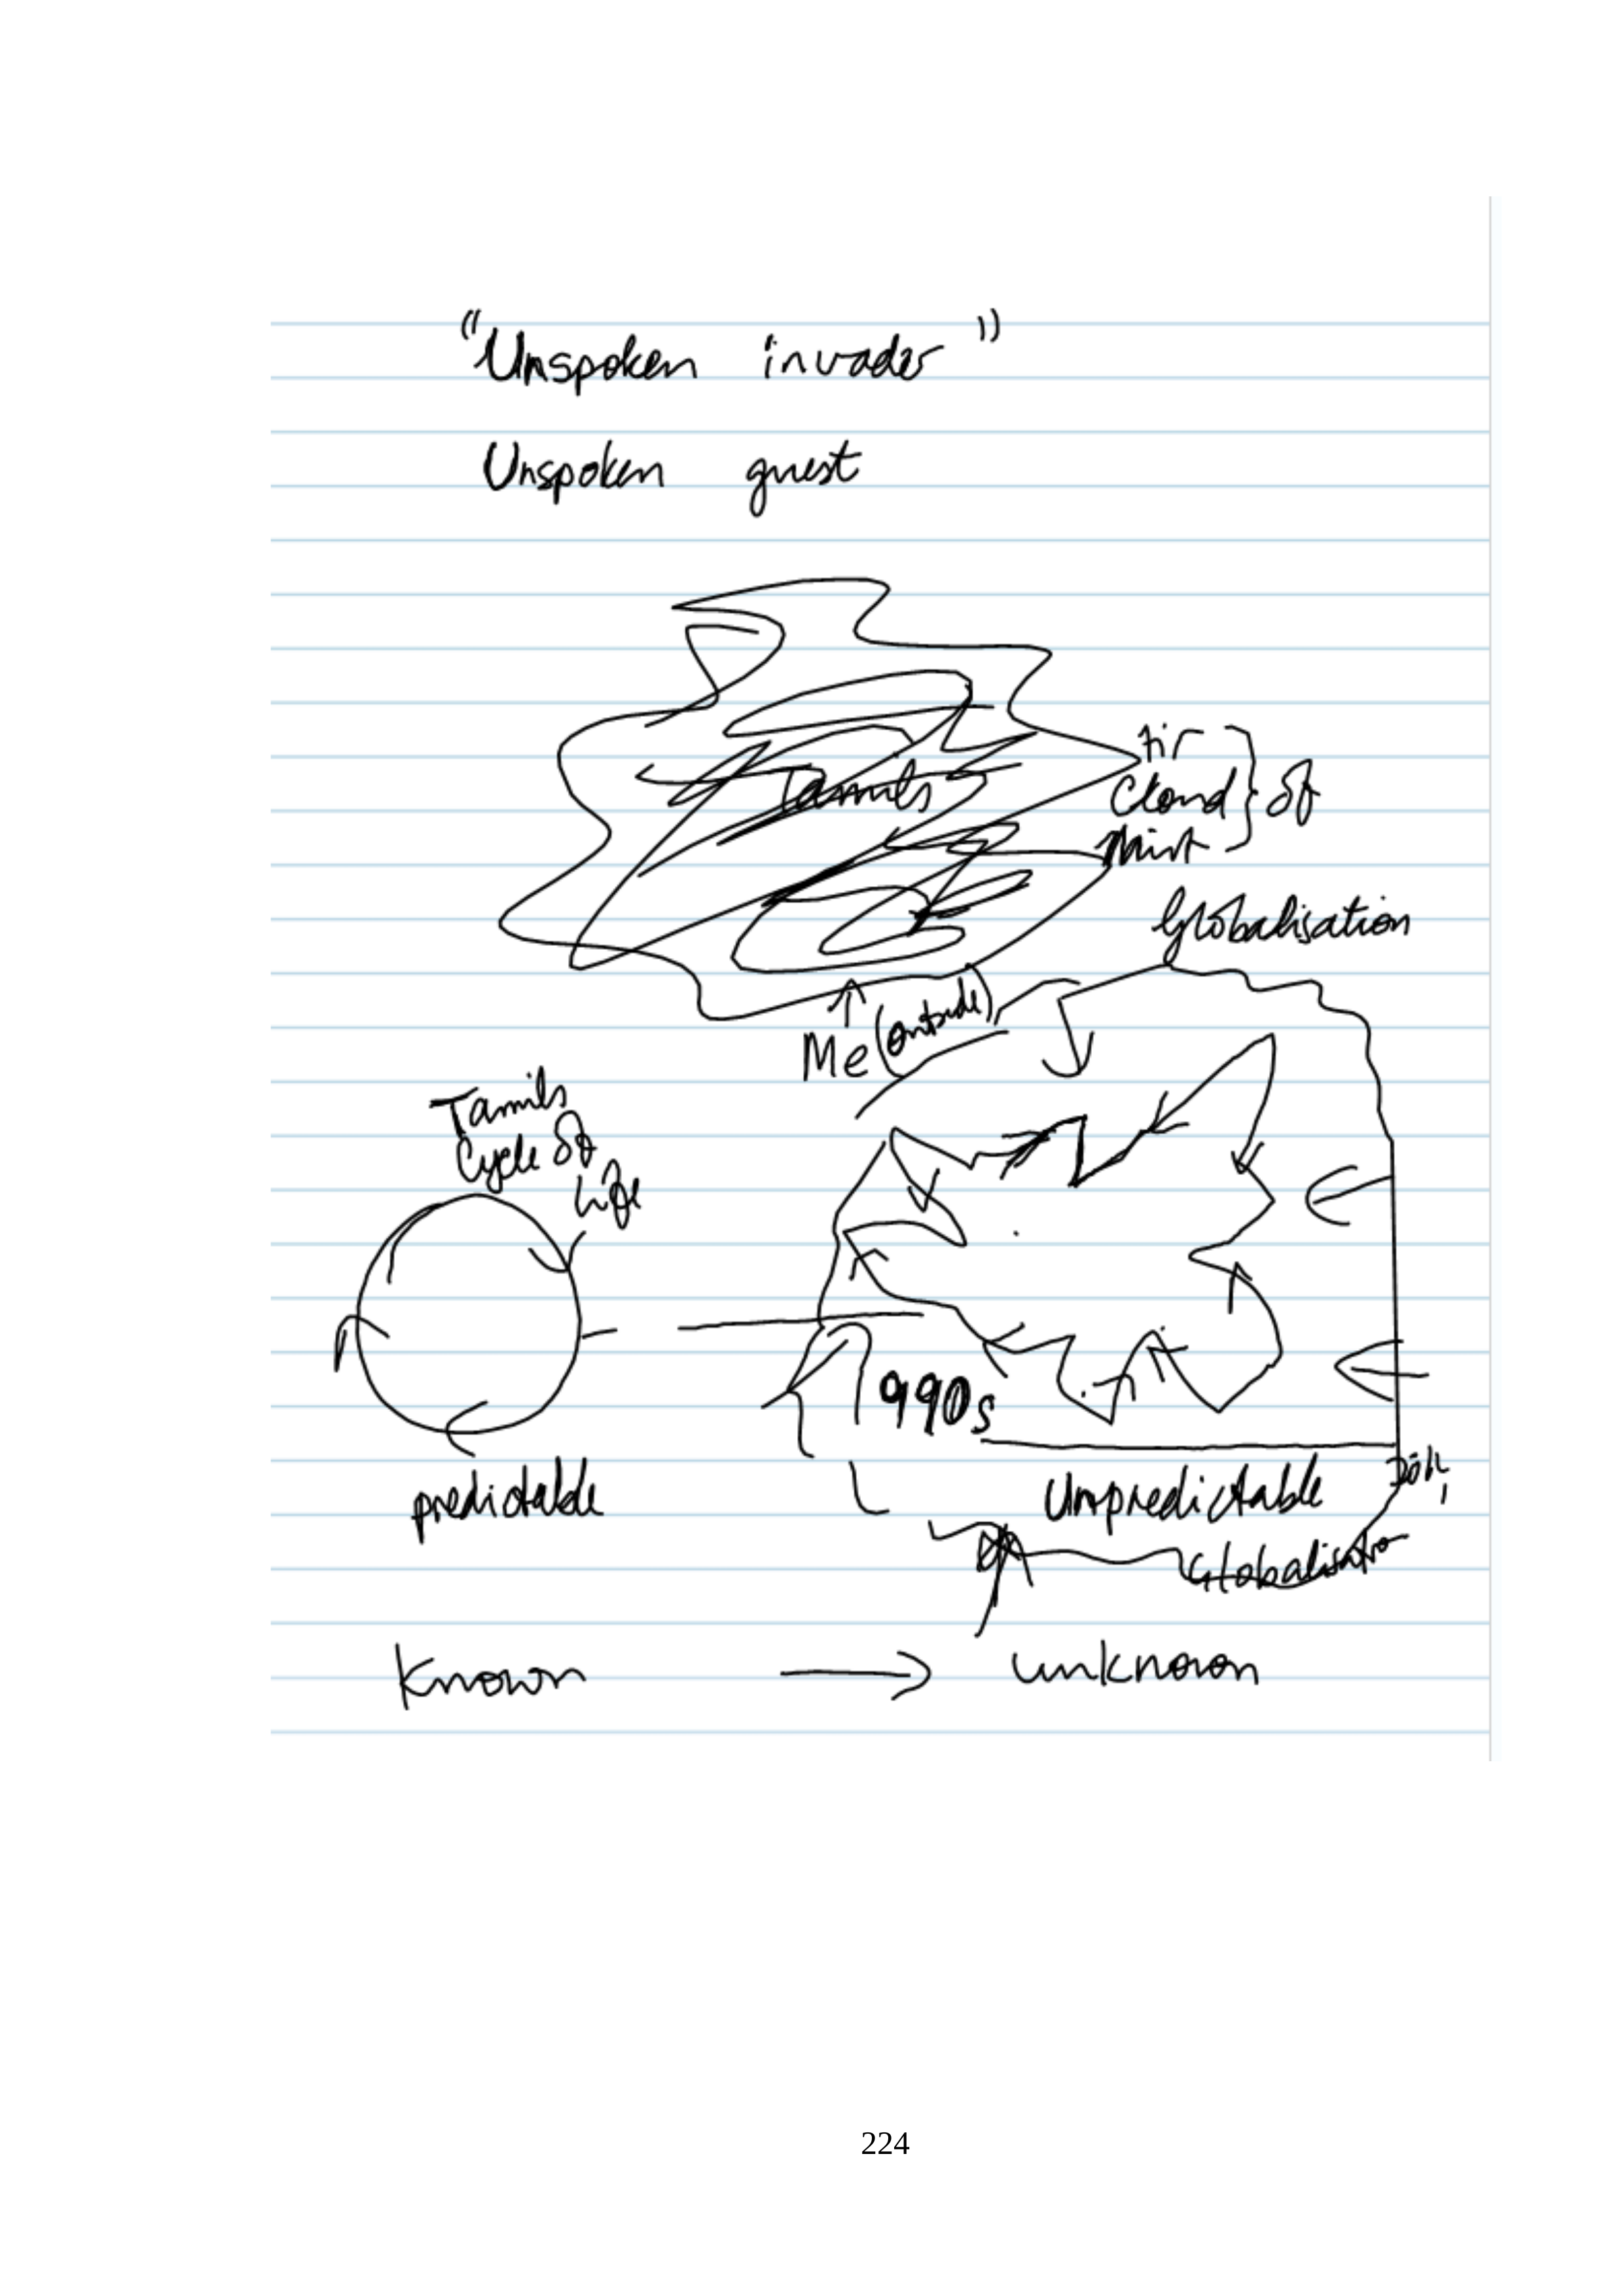 "Unspoken invader"
Unspoken guest
Air
Cloud } of
Mist
Tamils
Globalisation
Me (outside)
Tamils
Cycle of
Life
1990s
predictable
Unpredictable
Globalisatio
Known → unknown
224